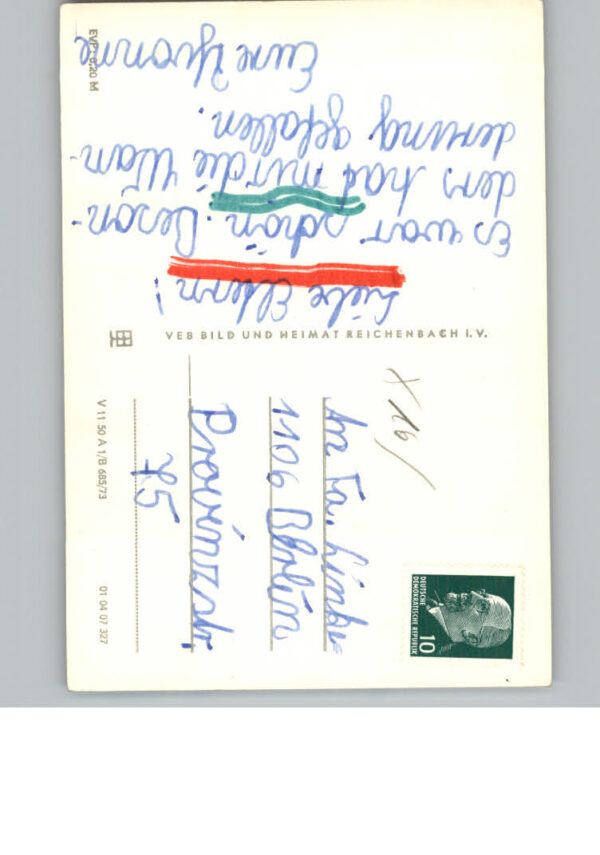 Liebe Eltern!
Es war schön. Beson-
ders hat mir die Wan-
derung gefallen.
Eure Yvonne
EVP 0,20 M
VEB BILD UND HEIMAT REICHENBACH I.V.
V 11 50 A 1/B 685/73
01 04 07 327
An Fa. Linke
1106 Berlin
Provinzstr.
75
DEUTSCHE
DEMOKRATISCHE REPUBLIK
10